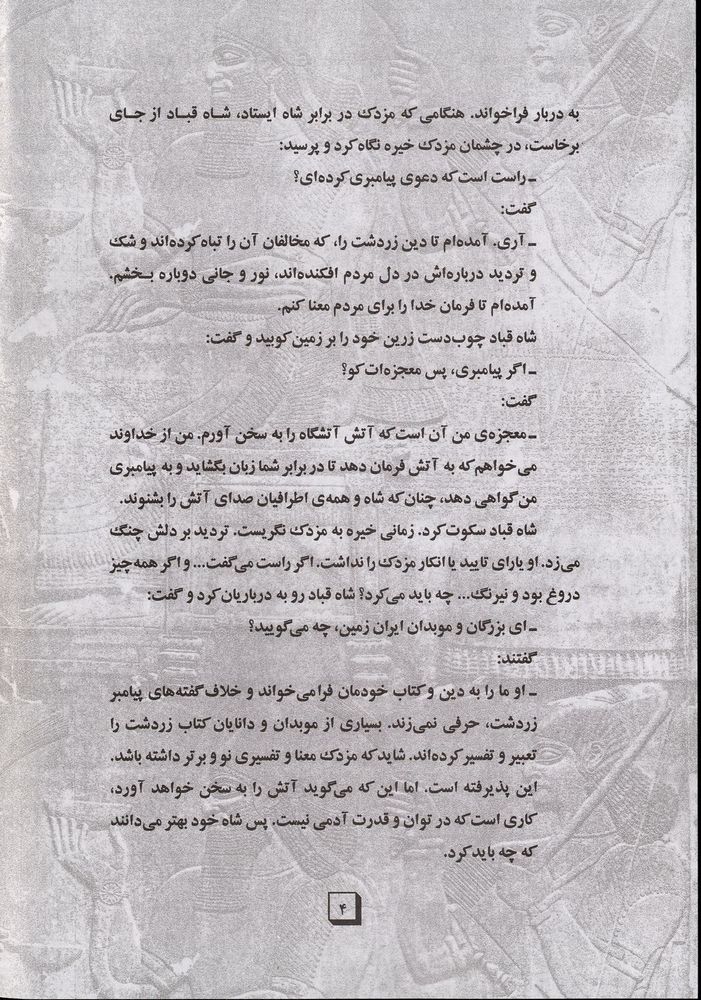 به دربار فراخواند. هنگامی که مزدک در برابر شاه ایستاد، شاه قباد از جای
برخاست، در چشمان مزدک خیره نگاه کرد و پرسید:
ـ راست است که دعوی پیامبری کرده‌ای؟
گفت:
ـ آری. آمده‌ام تا دین زردشت را، که مخالفان آن را تباه کرده‌اند و شک
و تردید درباره‌اش در دل مردم افکنده‌اند، نور و جانی دوباره بخشم.
آمده‌ام تا فرمان خدا را برای مردم معنا کنم.
شاه قباد چوب‌دست زرین خود را بر زمین کوبید و گفت:
ـ اگر پیامبری، پس معجزه‌ات کو؟
گفت:
ـ معجزه‌ی من آن است که آتش آتشگاه را به سخن آورم. من از خداوند
می‌خواهم که به آتش فرمان دهد تا در برابر شما زبان بگشاید و به پیامبری
من گواهی دهد، چنان که شاه و همه‌ی اطرافیان صدای آتش را بشنوند.
شاه قباد سکوت کرد. زمانی خیره به مزدک نگریست. تردید بر دلش چنگ
می‌زد. او یارای تایید یا انکار مزدک را نداشت. اگر راست می‌گفت... و اگر همه چیز
دروغ بود و نیرنگ... چه باید می‌کرد؟ شاه قباد رو به درباریان کرد و گفت:
ـ ای بزرگان و موبدان ایران زمین، چه می‌گویید؟
گفتند:
ـ او ما را به دین و کتاب خودمان فرا می‌خواند و خلاف گفته‌های پیامبر
زردشت، حرفی نمی‌زند. بسیاری از موبدان و دانایان کتاب زردشت را
تعبیر و تفسیر کرده‌اند. شاید که مزدک معنا و تفسیری نو و برتر داشته باشد.
این پذیرفته است. اما این که می‌گوید آتش را به سخن خواهد آورد،
کاری است که در توان و قدرت آدمی نیست. پس شاه خود بهتر می‌دانند
که چه باید کرد.
۴